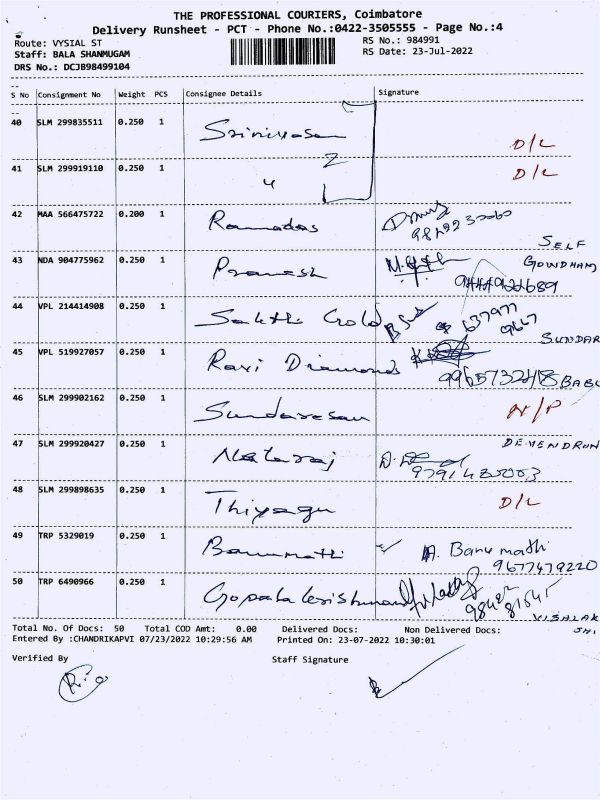 THE PROFESSIONAL COURIERS, Coimbatore
Delivery Runsheet - PCT - Phone No.:0422-3505555 - Page No.:4
Route: VYSIAL ST
RS No.: 984991
Staff: BALA SHANMUGAM
RS Date: 23-Jul-2022
DRS No.: DCJB98499104
S No Consignment No Weight PCS Consignee Details Signature
40 SLM 299835511 0.250 1 Srinivasan D/L
41 SLM 299919110 0.250 1 " 2 D/L
42 MAA 566475722 0.200 1 Ramadas
SELF
43 NDA 904775962 0.250 1 Pramesh
GOWDHAM
44 VPL 214414908 0.250 1 Sakthi Gold
SUNDAR
45 VPL 519927057 0.250 1 Ravi Diamonds
9965732418 BABU
46 SLM 299902162 0.250 1 Sundaresan N/P
DEVENDRUN
47 SLM 299920427 0.250 1 Nataraj
48 SLM 299898635 0.250 1 Thiyagu D/L
49 TRP 5329019 0.250 1 Banumathi A. Banu mathi
9677479220
50 TRP 6490966 0.250 1 Gopala krishnan
VISALAK
SHI
Total No. Of Docs: 50 Total COD Amt: 0.00 Delivered Docs: Non Delivered Docs:
Entered By :CHANDRIKAPVI 07/23/2022 10:29:56 AM Printed On: 23-07-2022 10:30:01
Verified By Staff Signature